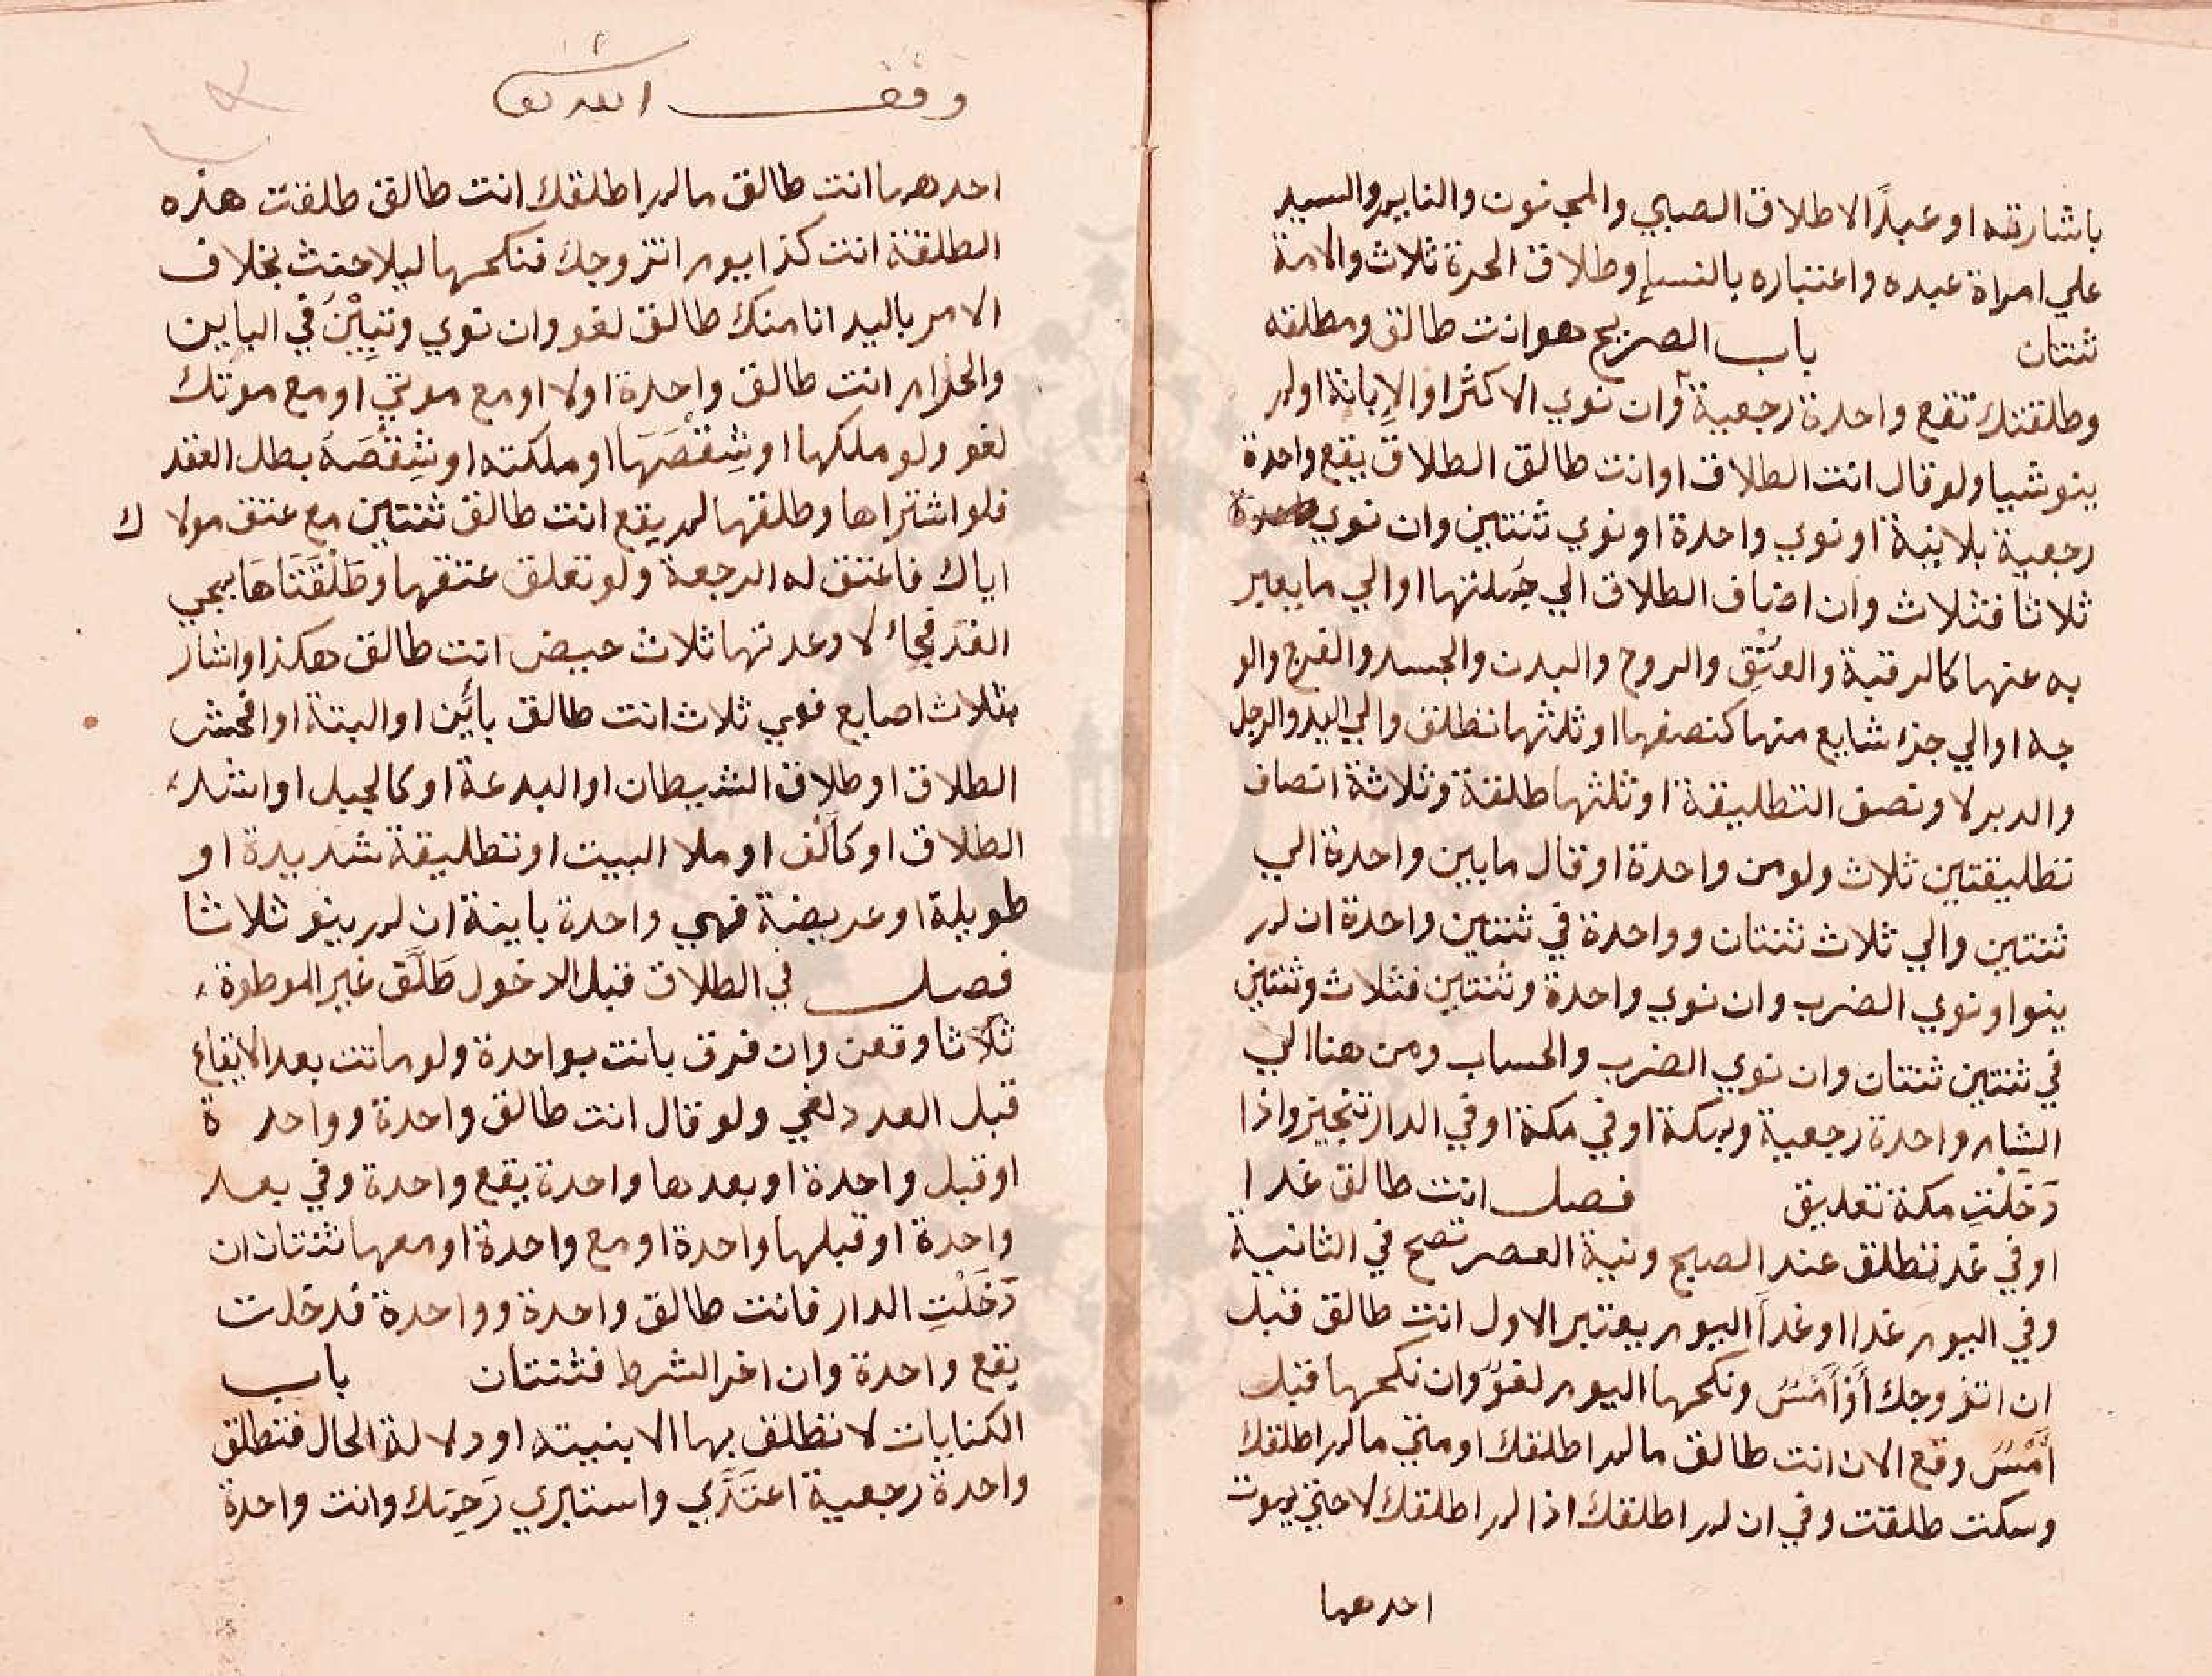 باشارته او عبدًا لا طلاق الصبي والمجنون والنايم والسيد
علي امراة عبده واعتباره بالنسإ وطلاق الحرة ثلاث والامة
ثنتان باب الصريح هو انت طالق ومطلقه
وطلقتك تقع واحدة رجعية وان نوي الاكثر او الإبانة او لم
ينو شيا ولو قال انت الطلاق او انت طالق الطلاق يقع واحدة
رجعية بلا نية او نوي واحدة او نوي ثنتين وان نوي
ثلاثا فثلاث وان اضاف الطلاق الي جملتها او الي ما يعبر
به عنها كالرقبة والعنق والروح والبدن والجسد والفرج والو
جه او الي جزء شايع منها كنصفها او ثلثها تطلق والي اليد والرجل
والدبر لا ونصف التطليقة او ثلثها طلقة وثلاثة انصاف
تطليقتين ثلاث ولو من واحدة او قال ما بين واحدة الي
ثنتين والي ثلاث ثنتان وواحدة في ثنتين واحدة ان لم
ينو او نوي الضرب وان نوي واحدة وثنتين فثلاث وثنتين
في ثنتين ثنتان وان نوي الضرب والحساب ومن هنا الي
الشام واحدة رجعية وبمكة او في مكة او في الدار تنجيز واذا
دَخَلْتِ مكة تعليق فصل انت طالق غدا
او في غد تطلق عند الصبح ونية العصر تصح في الثانية
وفي اليوم غدا او غداً اليوم يعتبر الاول انت طالق قبل
ان اتزوجك أَوْ أَمْسَ ونكحها اليوم لغوٌ وان نكحها قبل
أَمْسَ وقع الان انت طالق ما لم اطلقك او متي ما لم اطلقك
وسكت طلقت وفي ان لم اطلقك اذا لم اطلقك لا حتي يموت
احدهما
وقف الله تع
احدهما انت طالق ما لم اطلقك انت طالق طلقت هذه
الطلقة انت كذا يوم اتزوجك فنكحها ليلا حنث بخلاف
الامر باليد انا منك طالق لغو وان نوي وتَبِيْنُ في الباين
والحرام انت طالق واحدة او لا او مع موتي او مع موتك
لغو ولو ملكها او شِقْصَهَا او ملكته او شِقْصَهُ بطل العقد
فلو اشتراها وطلقها لم يقع انت طالق ثنتين مع عتق مولا ك
اياك فاعتق له الرجعة ولو تعلق عتقها وطَلْقَتَاهَا بمجي
الغد فجاء لا وعدتها ثلاث حيض انت طالق هكذا واشار
بثلاث اصابع فهي ثلاث انت طالق بائن او البتة او افحش
الطلاق او طلاق الشيطان او البدعة او كالجبل او اشد
الطلاق او كألف او ملا البيت او تطليقة شديدة او
طويلة او عريضة فهي واحدة باينة ان لم ينو ثلاثا
فصل في الطلاق قبل الدخول طَلَّق غير الموطوة
ثلاثا وقعن وان فرق بانت بواحدة ولو ماتت بعد الايقاع
قبل العدد لغي ولو قال انت طالق واحدة وواحد ة
او قبل واحدة او بعدها واحدة يقع واحدة وفي بعد
واحدة او قبلها واحدة او مع واحدة او معها ثنتان ان
دَخَلْتِ الدار فانت طالق واحدة وواحدة فدخلت
يقع واحدة وان اخر الشرط فثنتان باب
الكنايات لا تطلق بها الا بنيته او دلالة الحال فتطلق
واحدة رجعية اعتَدِّي واستبري رَحِمَك وانت واحدة